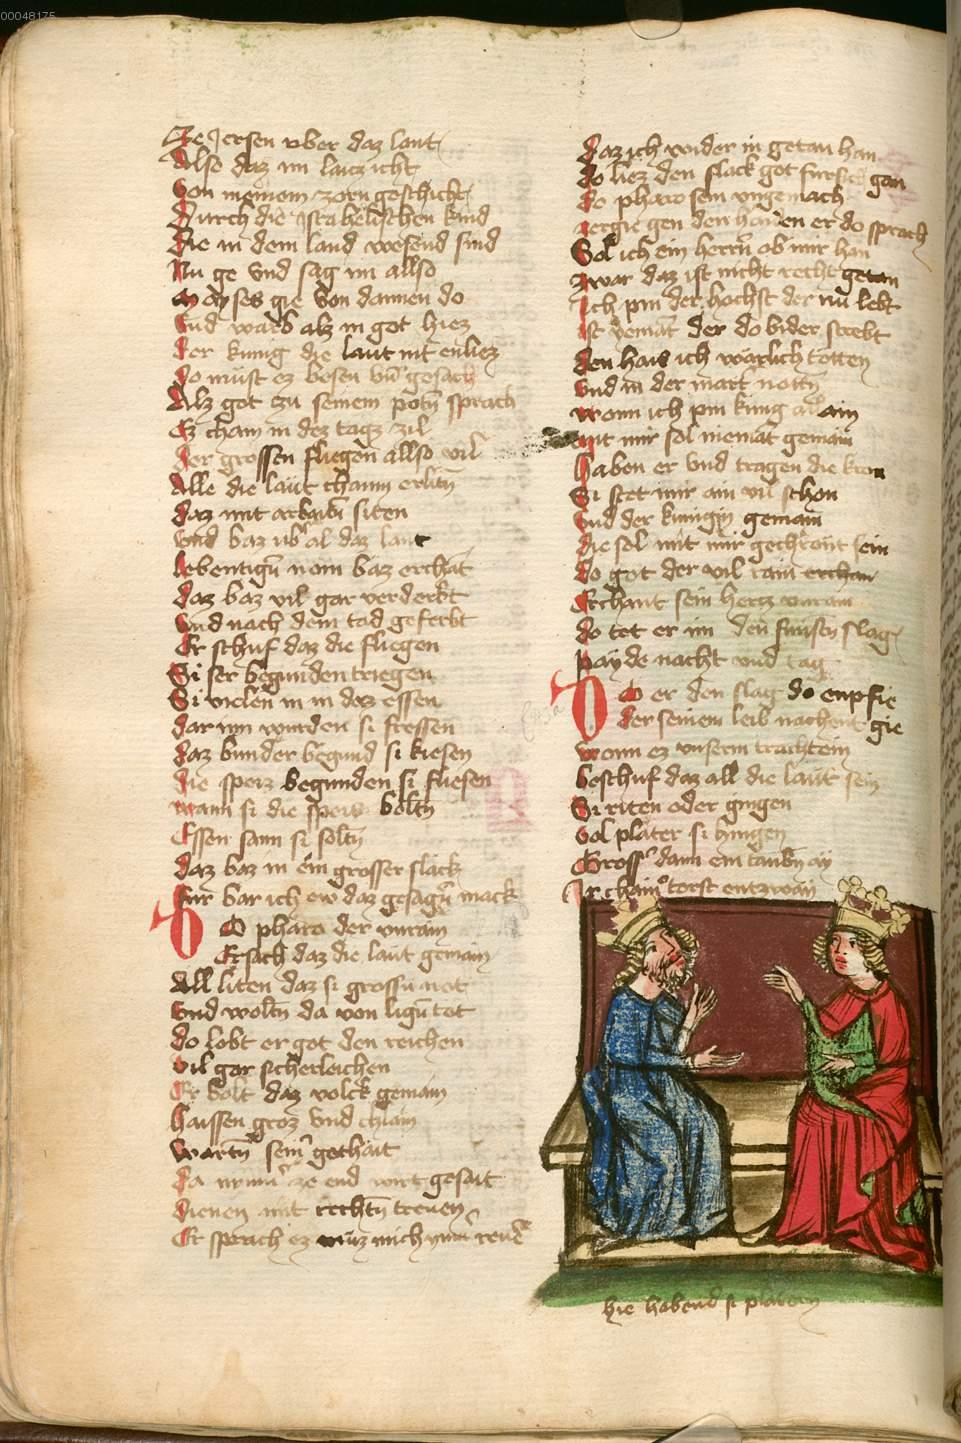 00048175
Ze Jersen vber daz lant
Alse daz im laicz icht
Von meinem zorn geschicht
Durch die Jsrahelischen kind
Die in dem land wesend sind
Nu ge vnd sag im allso
Moyses gie von dannen do
Vnd warb alz in got hiez
Der kunig die laut nit enliez
Do must ez besen vn̄ gesach
Alz got zu seinem potn̄ sprach
Ez cham in dez tagz zil
Der grossen fliegen allso vil
Alle die laüt chamn erlitn̄
daz mit
vnd baz vb̄ al daz lant
lebentign̄ nom baz erchāt
daz baz vil gar verderbt
vnd nach dem tod geferbt
Er schuf daz die fliegen
Si ser begunden triegen
Si vielen in in dez essen
dar inn wurden si fressen
daz bunder begund si kiesen
die speiz begunden si fliesen
wann si die speis boltn̄
Essen sann si soltn̄
daz baz in ein grosser slack
fur bar ich ew daz gesagn̄ mack
DO pharo der vnrain
Ersach daz die laut gemain
All liten daz si grossn̄ not
vnd woltn̄ da von lign̄ tot
do lobt er got den reichen
vil gar sicherleichen
Er bolt daz volck gemain
haissen groz vnd chlain
wartn̄ sein̄ gothait
da nymm̄ ze end wirt gesait
dienen mit rechtn̄ treuen
Er sprach ez muz mich ymm̄ reuē
daz ich wider in getan han
do liez den slack got fursich gan
do pharo sein vngemach
zergie gen den haiden er do sprach
Sol ich ein herrn̄ ob mir han
zwar daz ist nicht recht getan
Ich pin der hochst der nū lebt
ist yemāt der do bider strebt
den hais ich warlich totten
vnd in der mart nottn̄
wann ich pin king allain
mit mir sol niemāt gemain
haben er vnd tragen die kron
Si stet mir ain vil schon
vnd der kunigin gemain
die sol mit mir gechront sein
do got der vil rain erchan
Erchant sein hertz vnrain
do tet er im den funften slag
payde nacht vnd tag
DO er den slag do enpfie
der seinem leib nachent gie
wann ez vnserm trachtein
beschuf daz all die laüt sein
Si riten oder gingen
vol plater si hingen
Grosz̄ dann ein taubn̄ ay
Jr chain̄ torst entzway
hie habend si platern